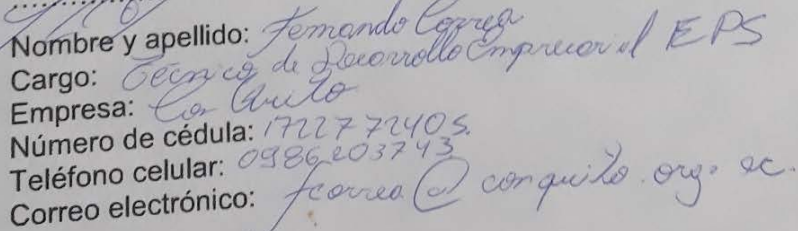 Nombre y apellido: Fernando Correa
Cargo: Técnico de Desarrollo Empresarial EPS
Empresa: ConQuito
Número de cédula: 1722772405.
Teléfono celular: 0986203743
Correo electrónico: fcorrea@conquito.org.ec.